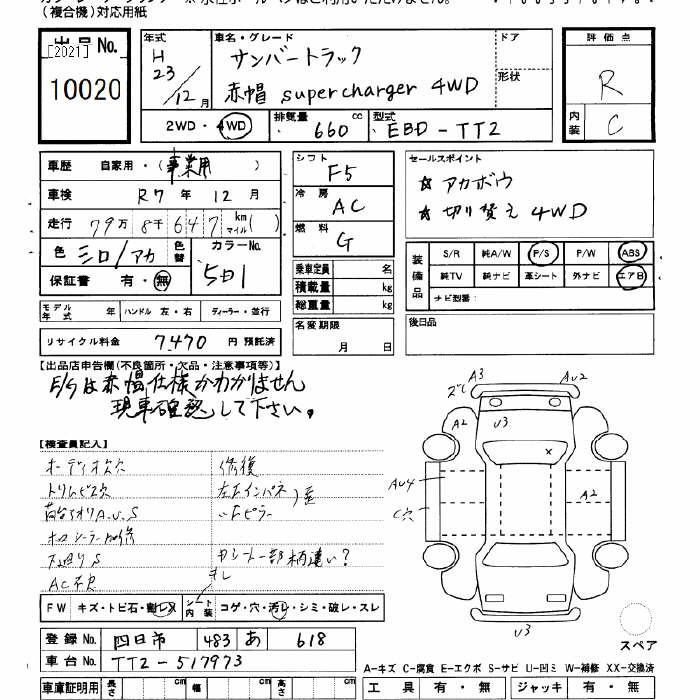 (複合機)対応用紙
出品No.
[2021]
10020
年式
H
23/12月
車名・グレード
サンバートラック
赤帽 supercharger 4WD
ドア
形状
2WD・4WD
排気量 660 cc
型式 EBD-TT2
評価点
R
内装
C
車歴 自家用・(事業用)
車検 R7年12月
走行 79万8千647 km マイル( )
色 シロ/アカ
色替
カラーNo.
51
保証書 有・無
モデル年式 年
ハンドル 左・右
ディーラー・並行
リサイクル料金 7470 円 預託済
シフト F5
冷房 AC
燃料 G
乗車定員 名
積載量 kg
総重量 kg
名変期限
月 日
セールスポイント
☆アカボウ
☆切り替え4WD
装備品
S/R 純A/W P/S P/W ABS
純TV 純ナビ 革シート 外ナビ エアB
ナビ型番:
後日品
【出品店申告欄(不良箇所・欠品・注意事項等)】
E/Gは赤帽仕様かわかりません
現車確認して下さい。
【検査員記入】
オーディオ欠穴
トリムビス穴
荷台アオリA.U.S
下廻りS
AC不良
修復
左右インパネ
〃Fピラー
歪
内シート一部柄違い?
キレ
FW キズ・トビ石・割レX
シート内装 コゲ・穴・汚レ・シミ・破レ・スレ
登録No. 四日市 483 あ 618
車台No. TT2-517973
車庫証明用 長さ cm 幅 cm 高さ cm
A3
AU2
ズレ
A2
U3
X
AU4
C穴
A2
U3
スペア
A-キズ C-腐食 E-エクボ S-サビ U-凹ミ W-補修 XX-交換済
工具 有・無 ジャッキ 有・無